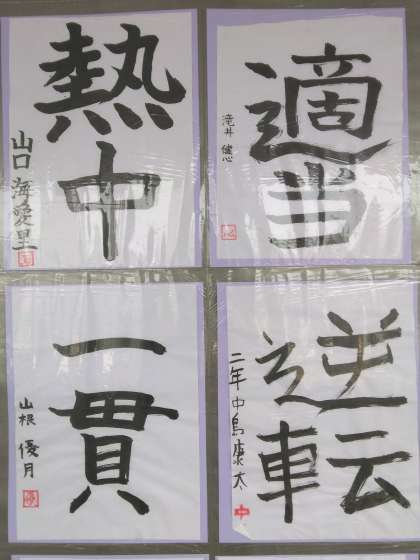 熱中
山口 海愛里
適当
滝井 悠心
一貫
山根 優月
逆転
二年 中島康太
中